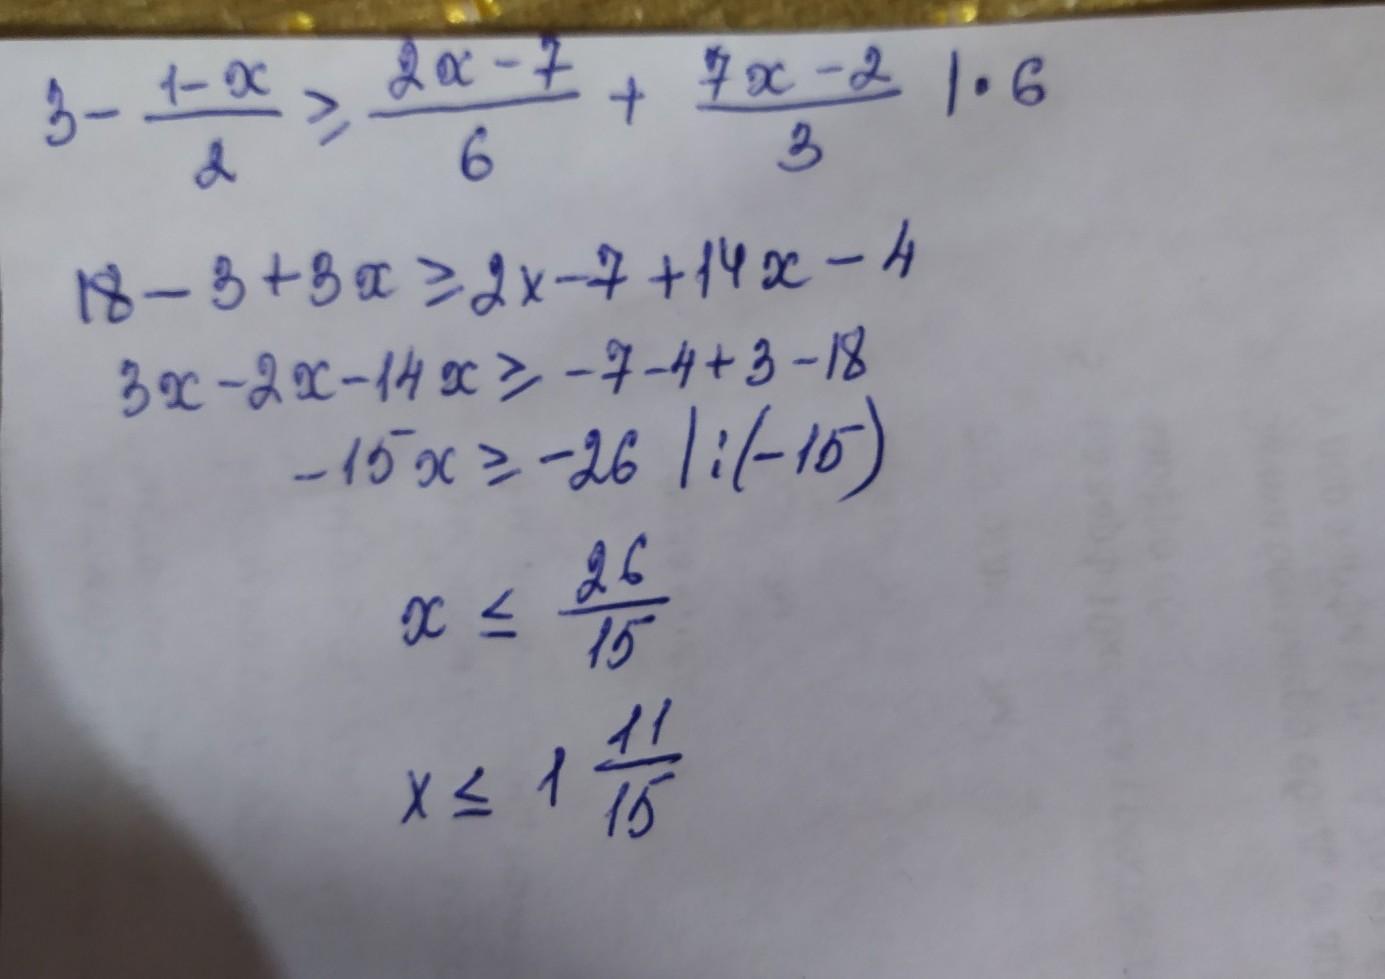 3 - (1-x)/2 ≥ (2x-7)/6 + (7x-2)/3 | · 6
18 - 3 + 3x ≥ 2x - 7 + 14x - 4
3x - 2x - 14x ≥ -7 - 4 + 3 - 18
-15x ≥ -26 | : (-15)
x ≤ 26/15
x ≤ 1 11/15